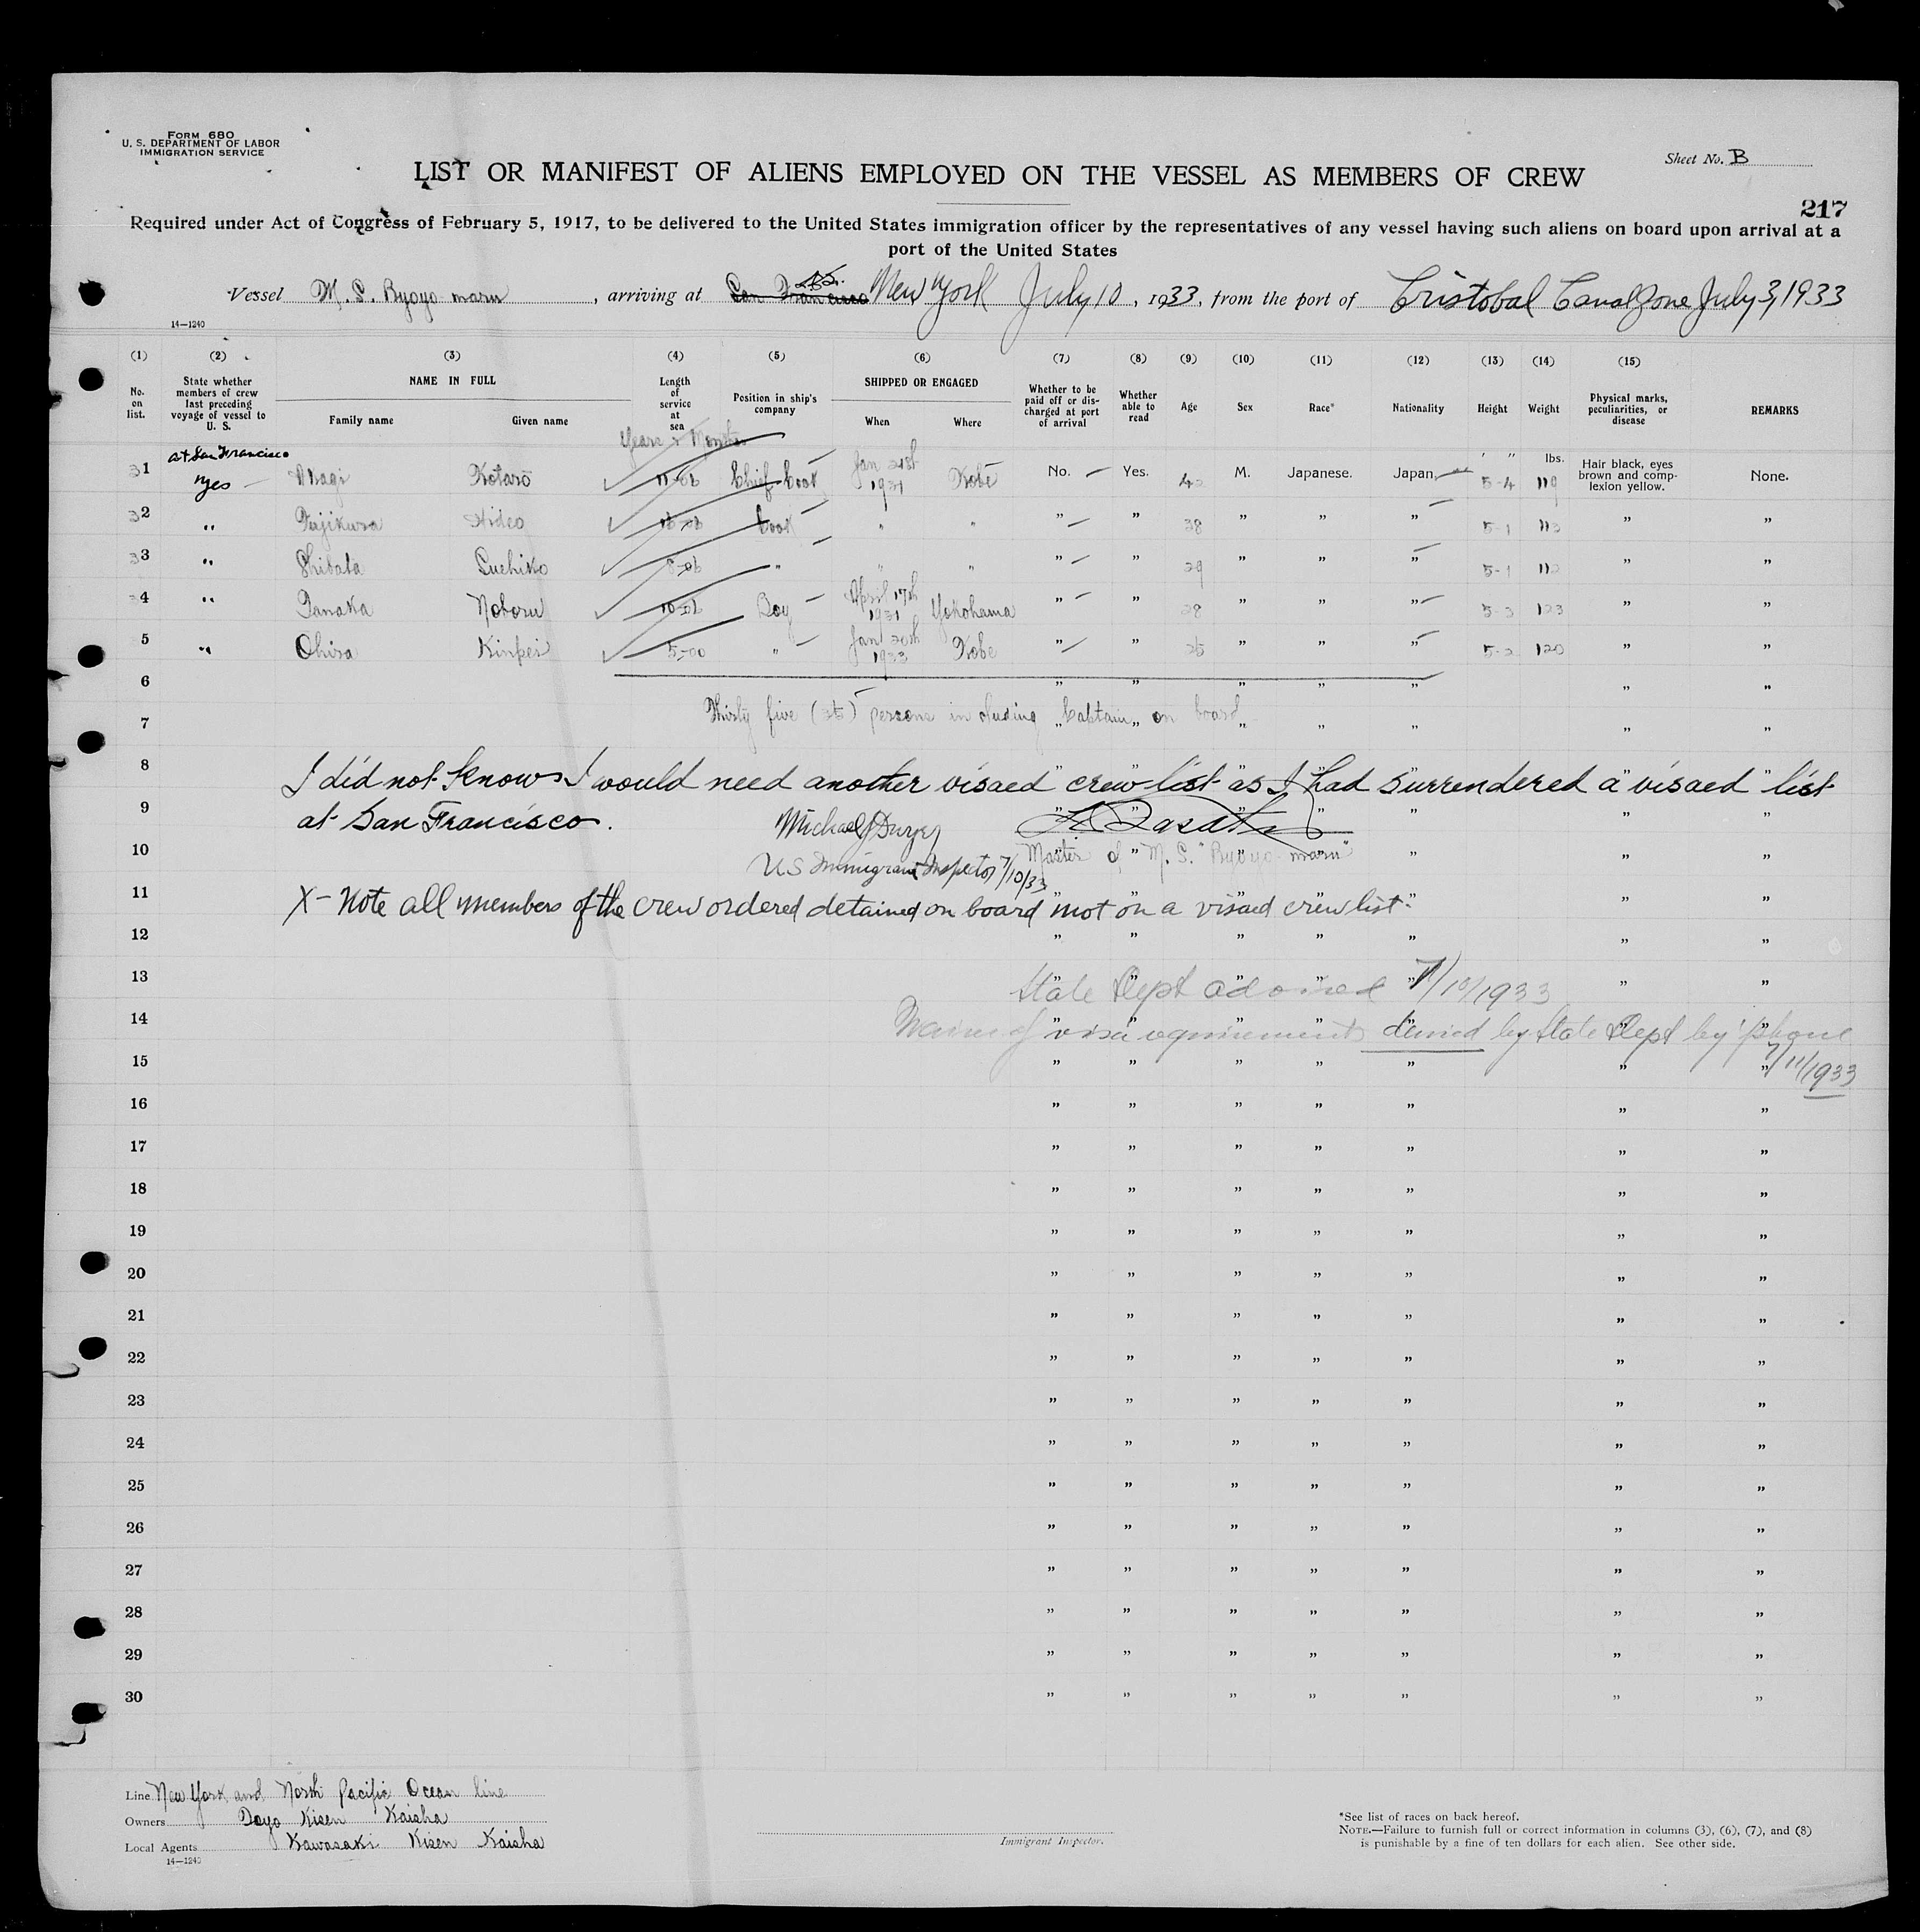 FORM 680
U. S. DEPARTMENT OF LABOR
IMMIGRATION SERVICE
Sheet No. B
LIST OR MANIFEST OF ALIENS EMPLOYED ON THE VESSEL AS MEMBERS OF CREW
217
Required under Act of Congress of February 5, 1917, to be delivered to the United States immigration officer by the representatives of any vessel having such aliens on board upon arrival at a
port of the United States
Vessel M. S. Ryoyo maru, arriving at San Francisco New York July 10, 1933, from the port of Cristobal Canal Zone July 3, 1933
14—1240
(1) (2) (3) (4) (5) (6) (7) (8) (9) (10) (11) (12) (13) (14) (15)
No. on list. State whether members of crew last preceding voyage of vessel to U. S. NAME IN FULL Family name Given name Length of service at sea Position in ship's company SHIPPED OR ENGAGED When Where Whether to be paid off or discharged at port of arrival Whether able to read Age Sex Race* Nationality Height Weight Physical marks, peculiarities, or disease REMARKS
Years & Months
at San Francisco
31 Yes Kotaro 11-06 Chief Cook Jan 21st 1931 Kobe No. Yes. M. Japanese. Japan. 5-4 lbs. 119 Hair black, eyes brown and complexion yellow. None.
32 " Fujikura Hideo Cook " " " " 38 " " " 5-1 113 " "
33 " Shibata " " " " " 29 " " " 5-1 " "
34 " Tanaka Noboru 10-06 Boy April 17th 1931 Yokohama " " 28 " " " 123 " "
5 " Ohira Kinpei 5-00 " Jan 20th 1933 Kobe " " " " " 5-2 120 " "
6 " " " " " " "
7 Thirty five (35) persons including Captain on board " " " " " " "
8 I did not know I would need another visaed crew list as I had surrendered a visaed list
9 at San Francisco.
Michael J Duryea
10 US Immigrant Inspector 7/10/33 Master of M. S. "Ryoyo maru"
11 X- Note all members of the crew ordered detained on board not on a visaed crew list.
12 " " " " " " "
13 State Dept advised 7/10/1933
14 Waiver of visa requirements denied by State Dept by 'phone
15 7/11/1933
16 " " " " " " "
17 " " " " " " "
18 " " " " " " "
19 " " " " " " "
20 " " " " " " "
21 " " " " " " "
22 " " " " " " "
23 " " " " " " "
24 " " " " " " "
25 " " " " " " "
26 " " " " " " "
27 " " " " " " "
28 " " " " " " "
29 " " " " " " "
30 " " " " " " "
Line New York and North Pacific Ocean line
Owners Toyo Kisen Kaisha
Local Agents Kawasaki Kisen Kaisha
14—1240
Immigrant Inspector.
*See list of races on back hereof.
NOTE.—Failure to furnish full or correct information in columns (3), (6), (7), and (8)
is punishable by a fine of ten dollars for each alien. See other side.